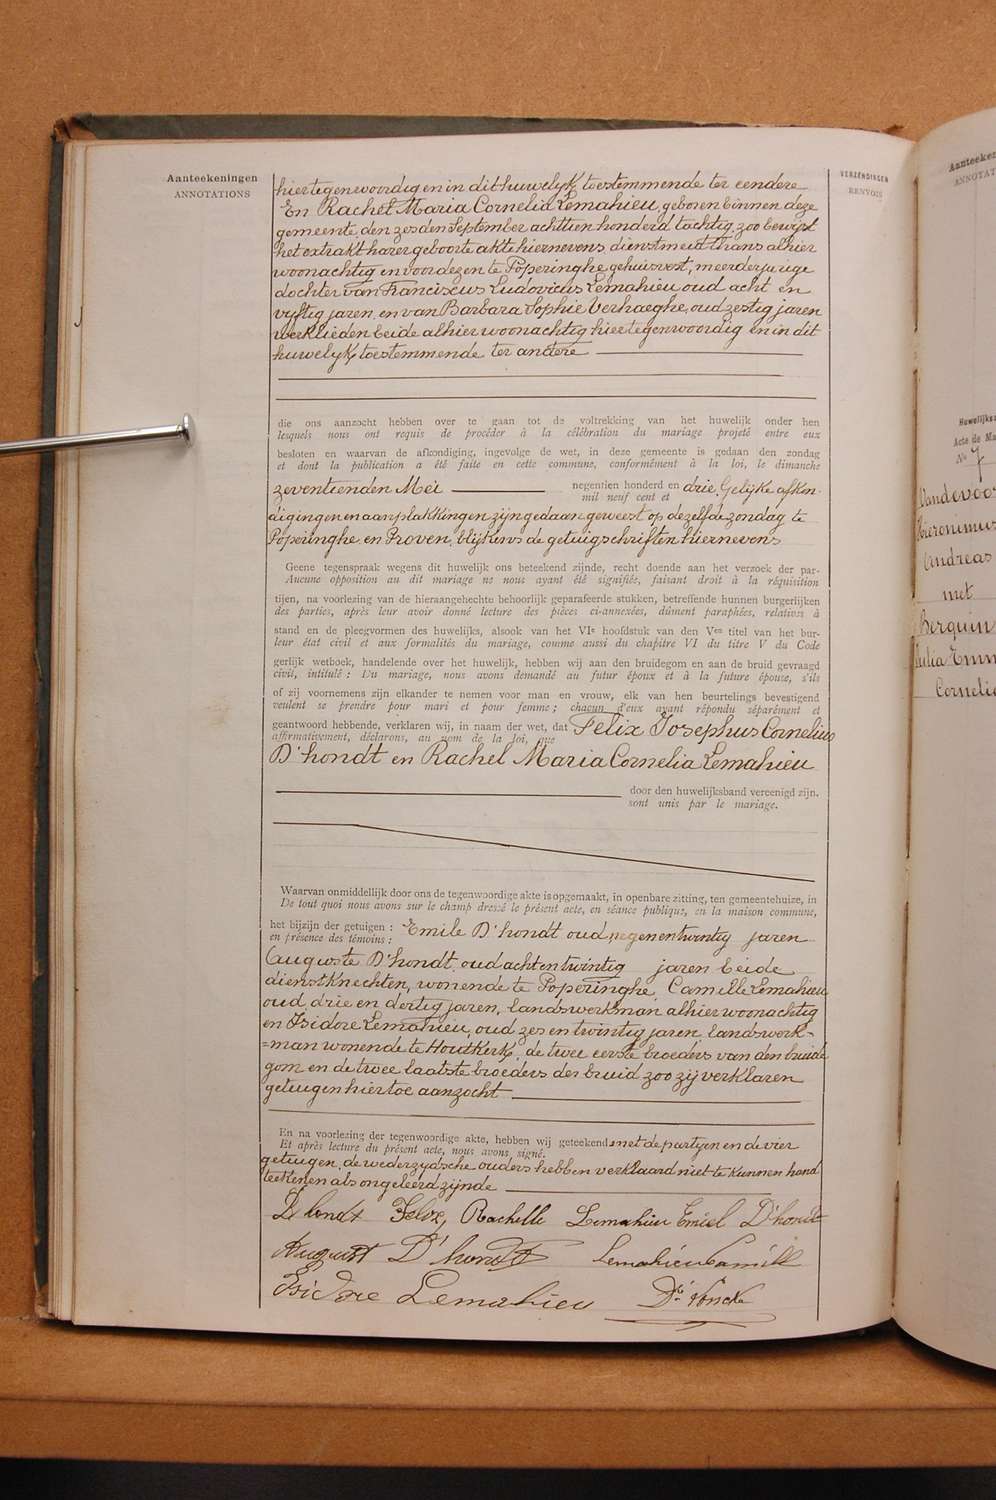 Aanteekeningen
ANNOTATIONS
VERZENDINGEN
RENVOIS
hiertegenwoordig en in dit huwelyk toestemmende ter eendere
En Rachel Maria Cornelia Lemahieu, geboren binnen deze
gemeente den zesden September achttien honderd tachtig, zoo bewijst
het extrakt harer geboorte akte hiernevens, dienstmeid thans alhier
woonachtig en voordezen te Poperinghe gehuisvest, meerderjarige
dochter van Franciscus Ludovicus Lemahieu oud acht en
vyftig jaren, en van Barbara Sophie Verhaeghe, oud zestig jaren
werklieden beide alhier woonachtig hiertegenwoordig en in dit
huwelyk toestemmende ter andere
die ons aanzocht hebben over te gaan tot de voltrekking van het huwelijk onder hen
lesquels nous ont requis de procéder à la célébration du mariage projeté entre eux
besloten en waarvan de afkondiging, ingevolge de wet, in deze gemeente is gedaan den zondag
et dont la publication a été faite en cette commune, conformément à la loi, le dimanche
zeventienden Mei negentien honderd en drie. Gelijke afkon-
mil neuf cent et
digingen en aanplakkingen zijn gedaan geweest op dezelfde zondag te
Poperinghe en Proven, blijkens de getuigschriften hiernevens
Geene tegenspraak wegens dit huwelijk ons beteekend zijnde, recht doende aan het verzoek der par-
Aucune opposition au dit mariage ne nous ayant été signifiée, faisant droit à la réquisition
tijen, na voorlezing van de hieraangehechte behoorlijk geparafeerde stukken, betreffende hunnen burgerlijken
des parties, après leur avoir donné lecture des pièces ci-annexées, dûment paraphées, relatives à
stand en de pleegvormen des huwelijks, alsook van het VIe hoofdstuk van den Ven titel van het bur-
leur état civil et aux formalités du mariage, comme aussi du chapitre VI du titre V du Code
gerlijk wetboek, handelende over het huwelijk, hebben wij aan den bruidegom en aan de bruid gevraagd
civil, intitulé : Du mariage, nous avons demandé au futur époux et à la future épouse, s'ils
of zij voornemens zijn elkander te nemen voor man en vrouw, elk van hen beurtelings bevestigend
veulent se prendre pour mari et pour femme ; chacun d'eux ayant répondu séparément et
geantwoord hebbende, verklaren wij, in naam der wet, dat Felix Josephus Cornelius
affirmativement, déclarons, au nom de la loi, que
D'hondt en Rachel Maria Cornelia Lemahieu
door den huwelijksband vereenigd zijn.
sont unis par le mariage.
Waarvan onmiddellijk door ons de tegenwoordige akte is opgemaakt, in openbare zitting, ten gemeentehuize, in
De tout quoi nous avons sur le champ dressé le présent acte, en séance publique, en la maison commune,
het bijzijn der getuigen : Emile D'hondt oud negenentwintig jaren
en présence des témoins :
Auguste D'hondt, oud achtentwintig jaren beide
dienstknechten, wonende te Poperinghe, Camille Lemahieu
oud drie en dertig jaren, landswerkman alhier woonachtig
en Isidore Lemahieu, oud zes en twintig jaren, landswerk-
=man wonende te Houtkerk, de twee eerste broeders van den bruide
gom en de twee laatste broeders der bruid zoo zij verklaren
getuigen hiertoe aanzocht
En na voorlezing der tegenwoordige akte, hebben wij geteekend met de partyen en de vier
Et après lecture du présent acte, nous avons signé.
getuigen, de wederzydsche ouders hebben verklaard niet te kunnen hand
teekenen als ongeleerd zijnde
Dhondt Felix, Rachelle Lemahieu Emiel D'hondt
August D'hondt Lemahieu Camill
Isidore Lemahieu
Aanteeken
ANNOTAT
Huwelijks
Acte de Ma
No 7
Vandevoor
Hieronimus
Andreas
met
Berquin
Julia Emm
Cornelia